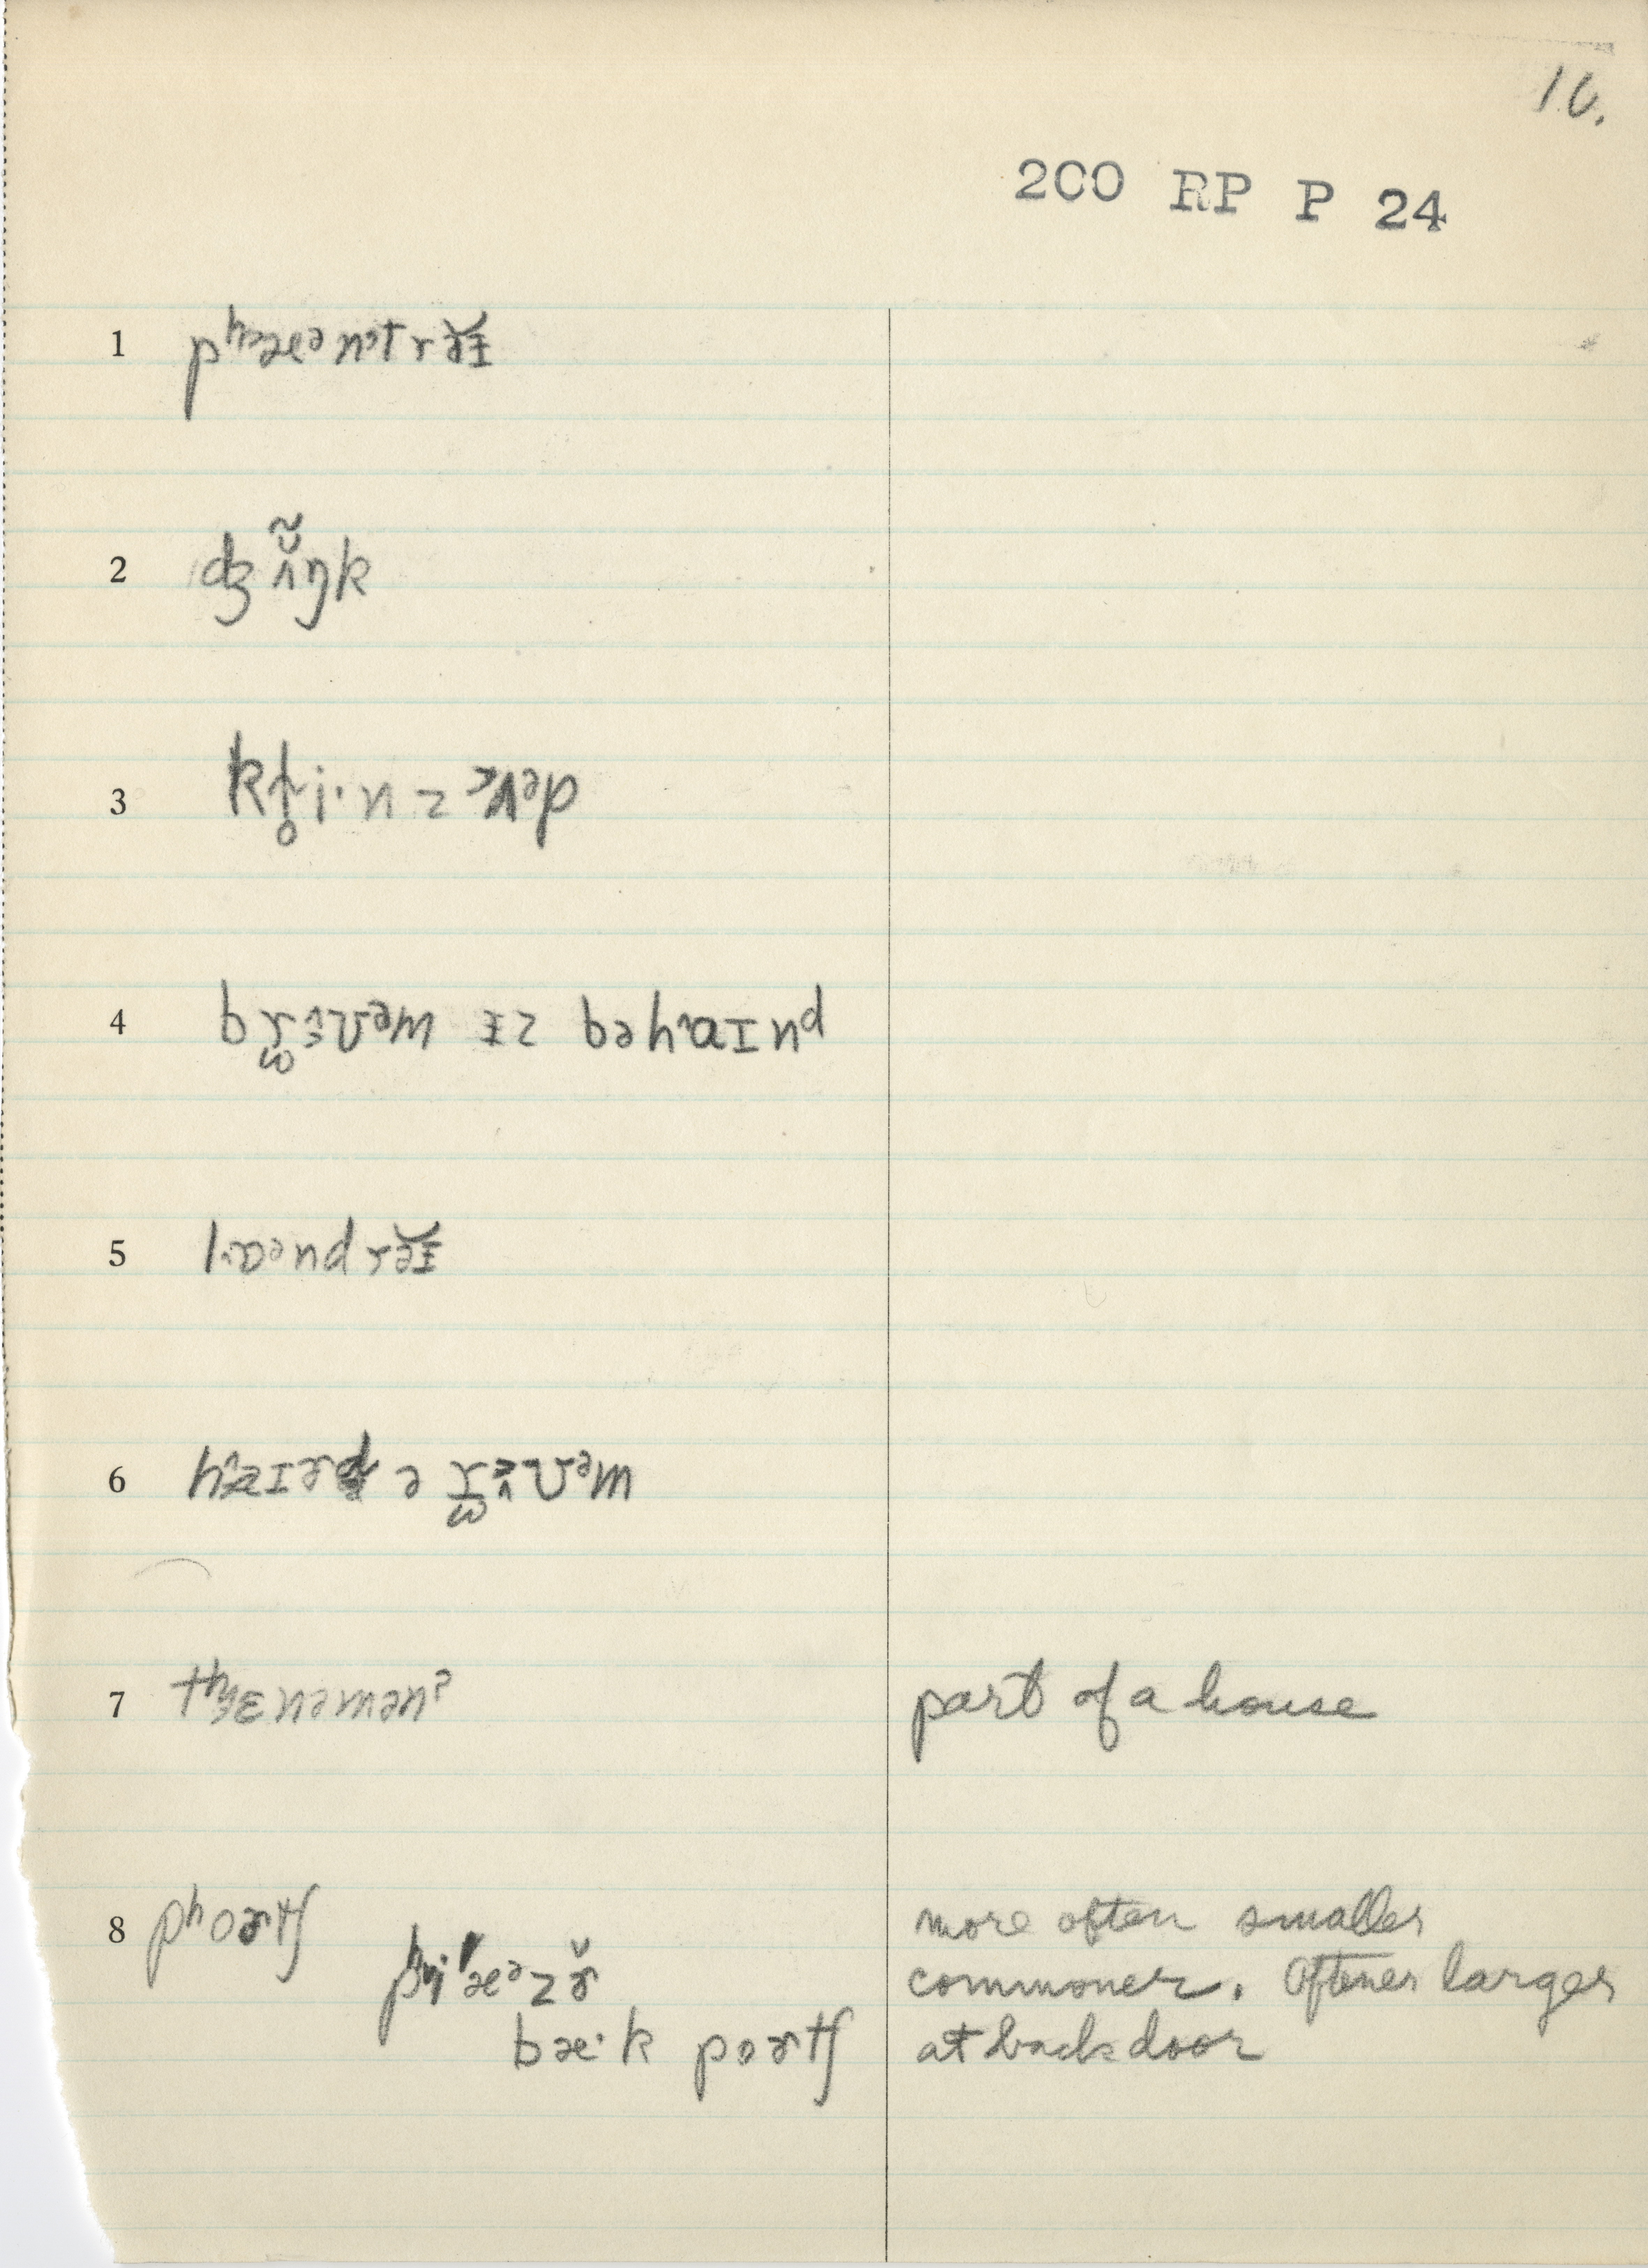 10.
200 RP P 24
1 pʰæᵊntrə̆ɪ
2 dʒʌ̃̆ŋk
3 kl̥i·nz ʌᵊp
4 br̫ᴜᵊm ɪz bəhaɪnd
5 lɒᵊndrə̆ɪ
6 hæɪɚd ə r̫ᴜᵊm
7 tʰɛnəmənˀ part of a house
8 pʰoɚtʃ more often smaller
pʰi'æᵊzɚ̆ commoner. Oftener larger
bæ·k poɚtʃ at back door